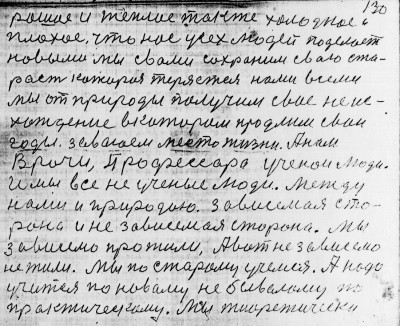 130
рошое и теплое также холодное и
плохое, что нас усех людей поделает
новыми мы свами сохраним сваю ста-
раст каторая теряется нами всеми
мы от природы получим свае неис-
хождение вкатором продлим сваи
годы. заваюем место жизни. А нам
Врачи, Профессара ученои люди.
И мы все не ученые люди. Между
нами и природаю. Зависемая сто-
рона и не зависемая сторона. Мы
зависимо прожили, А вот не зависемо
не жили. Мы по старому учемся. А надо
учится по новаму не бывалому по
практическому. Мы тиоретически